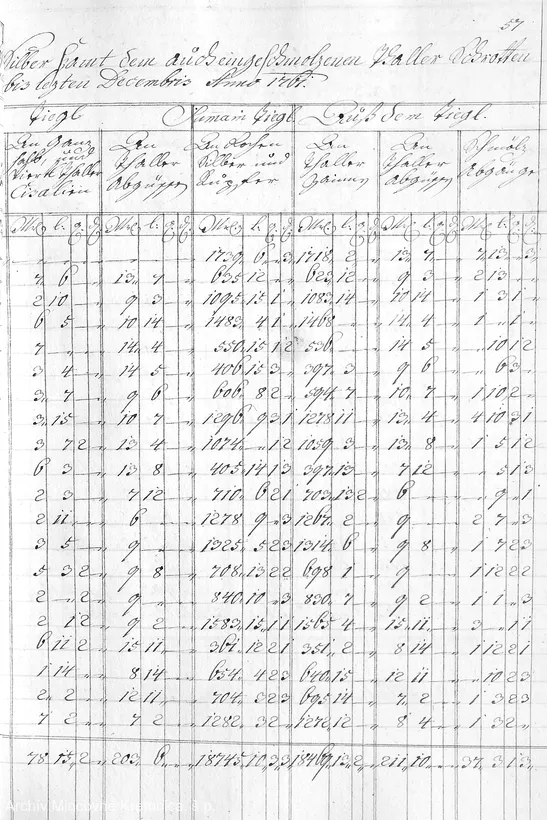 57
Silber samt dem auch eingeschmolzenen Thaller Schrotten
bis lezten Decembris Anno 1761.
Tiegl Summa in Tiegl Auß dem Tiegl.
An Ganz An An Rohen An An Schmölz
halb, und Thaller Silber und Thaller Thaller Abgänge
Viertl Thaller Abgüssen Kupfer Zainen Abgüssen
Cisalien
1739 6 " 3 1718 2 " 13 7 " 7 13 " 3
7 6 " 13 7 " 635 12 " 623 12 " 9 3 " 2 13 "
2 10 " 9 3 " 1095 15 1 " 1083 14 " 10 14 " 1 3 1 "
6 5 " 10 14 " 1483 4 1 " 1468 " 14 4 " 1 " 1 "
7 " 14 4 " 550 15 1 2 536 " 14 5 " 10 1 2
3 4 " 14 5 " 406 15 3 " 397 3 " 9 6 " " 6 3 "
3 7 " 9 6 " 606 8 2 " 594 7 " 10 7 " 1 10 2 "
3 15 " 10 7 " 1296 9 3 1 1278 11 " 13 4 " 4 10 3 1
3 7 2 " 13 4 " 1074 " 1 2 1059 3 " 13 8 " 1 5 1 2
6 3 " 13 8 " 405 14 1 3 397 13 " 7 12 " " 5 1 3
2 3 " 7 12 " 710 6 2 1 703 13 2 6 " " 9 " 1
2 11 " 6 " 1278 9 " 3 1267 2 " 9 " 2 7 " 3
3 5 " 9 " 1325 5 2 3 1314 6 " 9 8 " 1 7 2 3
5 3 2 " 9 8 " 708 13 2 2 698 1 " 9 " 1 12 2 2
2 " 2 " 9 " 840 10 " 3 830 7 " 9 2 " 1 1 " 3
2 1 2 " 9 2 " 1583 15 1 1 1565 4 " 15 11 " 3 " 1 1
6 11 2 " 15 11 " 361 12 2 1 351 2 " 8 14 " 1 12 2 1
1 14 " 8 14 " 654 4 2 3 640 15 " 12 11 " " 10 2 3
2 " 2 " 12 11 " 704 3 2 3 695 14 " 7 2 " 1 3 2 3
7 2 " 7 2 " 1282 3 2 " 1272 12 " 8 4 " 1 3 2 "
78 15 2 " 203 6 " 18745 10 3 3 18469 13 2 " 211 10 " 37 3 1 3
Archiv Mincovne Kremnica, š.p.